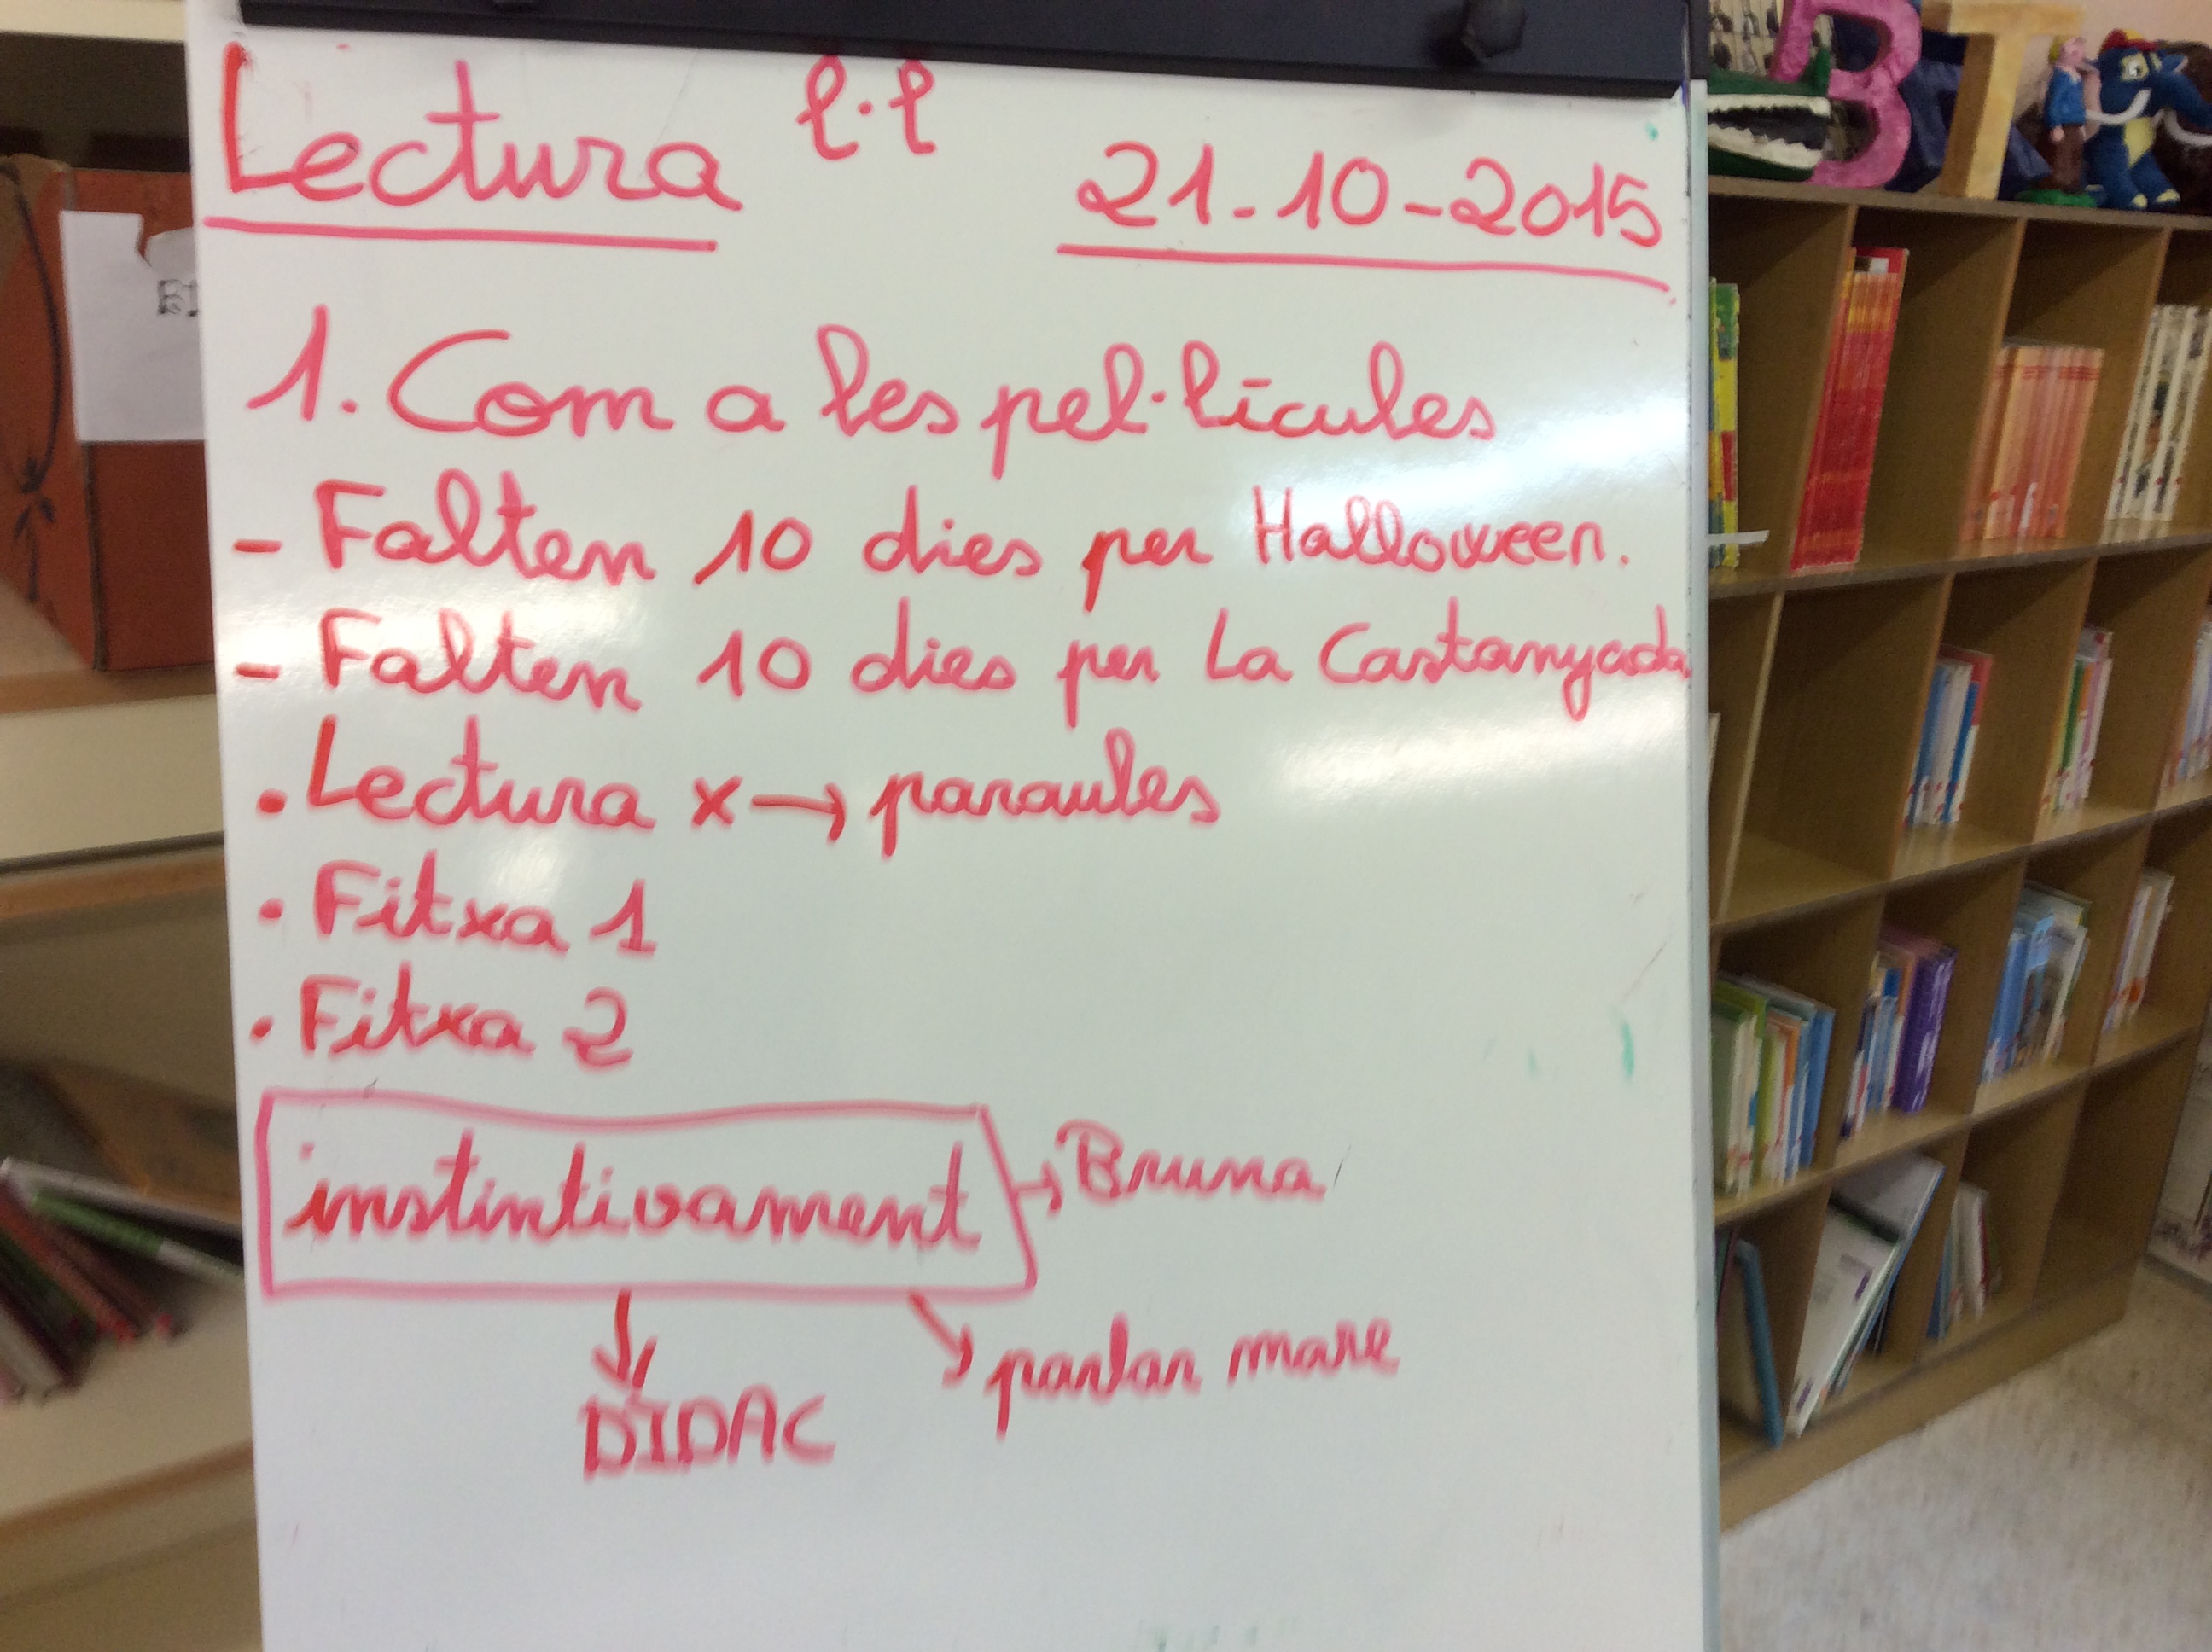 Lectura l·l 21-10-2015
1. Com a les pel·lícules
- Falten 10 dies per Halloween.
- Falten 10 dies per La Castanyada
• Lectura x → paraules
• Fitxa 1
• Fitxa 2
instintivament → Bruna
↓ ↘ parlar mare
DIDAC
B T